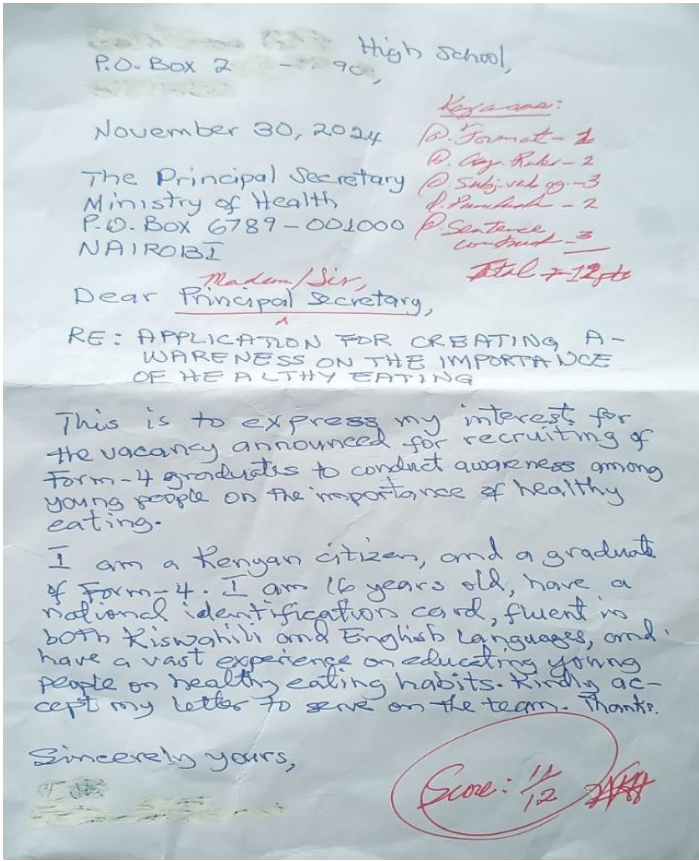 High School,
P.O. Box 2 - 90,
November 30, 2024
The Principal Secretary
Ministry of Health
P.O. Box 6789-001000
NAIROBI
Format - 1
- 2
Subj. - 3
- 2
Sentence
- 3
Total 12 pts
Madam/Sir,
Dear Principal Secretary,
RE: APPLICATION FOR CREATING A-
WARENESS ON THE IMPORTANCE
OF HEALTHY EATING
This is to express my interest for
the vacancy announced for recruiting of
Form-4 graduates to conduct awareness among
young people on the importance of healthy
eating.
I am a Kenyan citizen, and a graduate
of Form-4. I am 16 years old, have a
national identification card, fluent in
both Kiswahili and English Languages, and
have a vast experience on educating young
people on healthy eating habits. Kindly ac-
cept my letter to serve on the team. Thanks.
Sincerely yours,
Score: 11/12